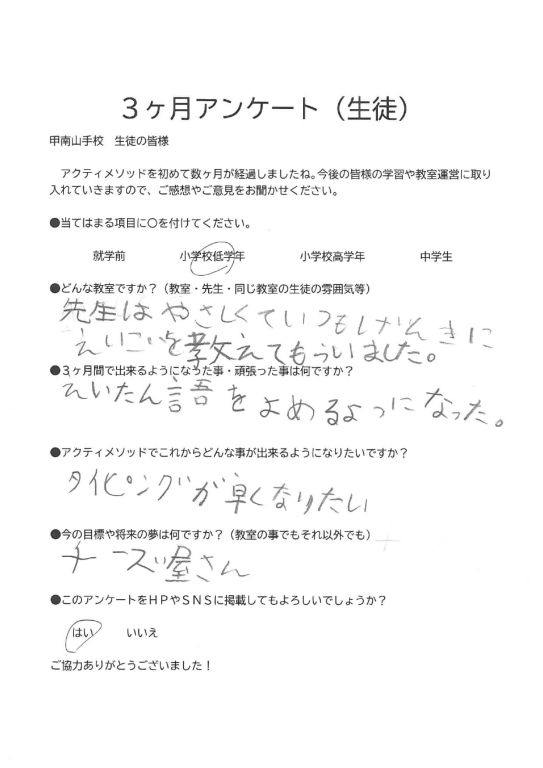 3ヶ月アンケート（生徒）
甲南山手校　生徒の皆様
アクティメソッドを初めて数ヶ月が経過しましたね。今後の皆様の学習や教室運営に取り
入れていきますので、ご感想やご意見をお聞かせください。
●当てはまる項目に〇を付けてください。
就学前　小学校低学年　小学校高学年　中学生
●どんな教室ですか？（教室・先生・同じ教室の生徒の雰囲気等）
先生はやさしくていつもげんきに
えいごを教えてもらいました。
●3ヶ月間で出来るようになった事・頑張った事は何ですか？
えいたん語をよめるようになった。
●アクティメソッドでこれからどんな事が出来るようになりたいですか？
タイピングが早くなりたい
●今の目標や将来の夢は何ですか？（教室の事でもそれ以外でも）
チーズ屋さん
●このアンケートをHPやSNSに掲載してもよろしいでしょうか？
はい　いいえ
ご協力ありがとうございました！